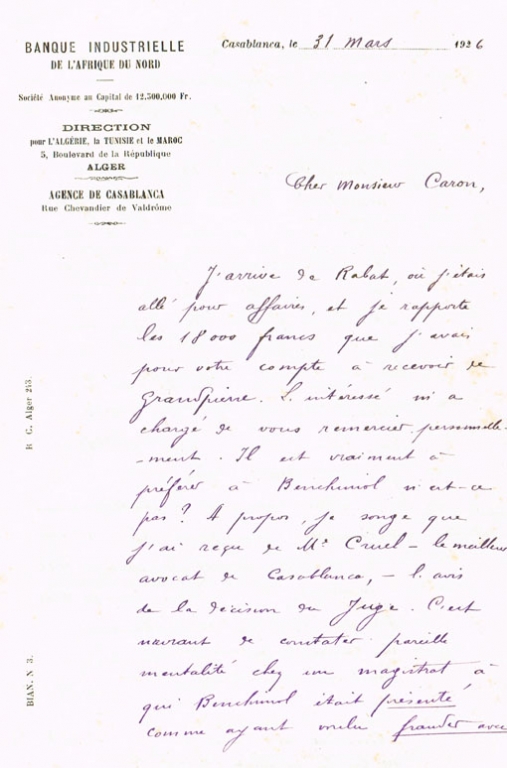 BANQUE INDUSTRIELLE
DE L'AFRIQUE DU NORD
Société Anonyme au Capital de 12.500,000 Fr.
DIRECTION
pour L'ALGÉRIE, la TUNISIE et le MAROC
5, Boulevard de la République
ALGER
AGENCE DE CASABLANCA
Rue Chevandier de Valdrôme
Casablanca, le 31 Mars 1926
Cher Monsieur Caron,
J'arrive de Rabat, où j'étais
allé pour affaires, et je rapporte
les 18000 francs que j'avais
pour votre compte à recevoir de
Grandpierre. L'intéressé m'a
chargé de vous remercier personnelle-
-ment. Il est vraiment à
préférer à Benchimol n'est-ce
pas ? A propos, je songe que
j'ai reçu de Me Cruel – le meilleur
avocat de Casablanca, – l'avis
de la décision du Juge. C'est
navrant de constater pareille
mentalité chez un magistrat à
qui Benchimol était présenté
comme ayant voulu frauder avec
R C. Alger 213.
BIAN. N 3.